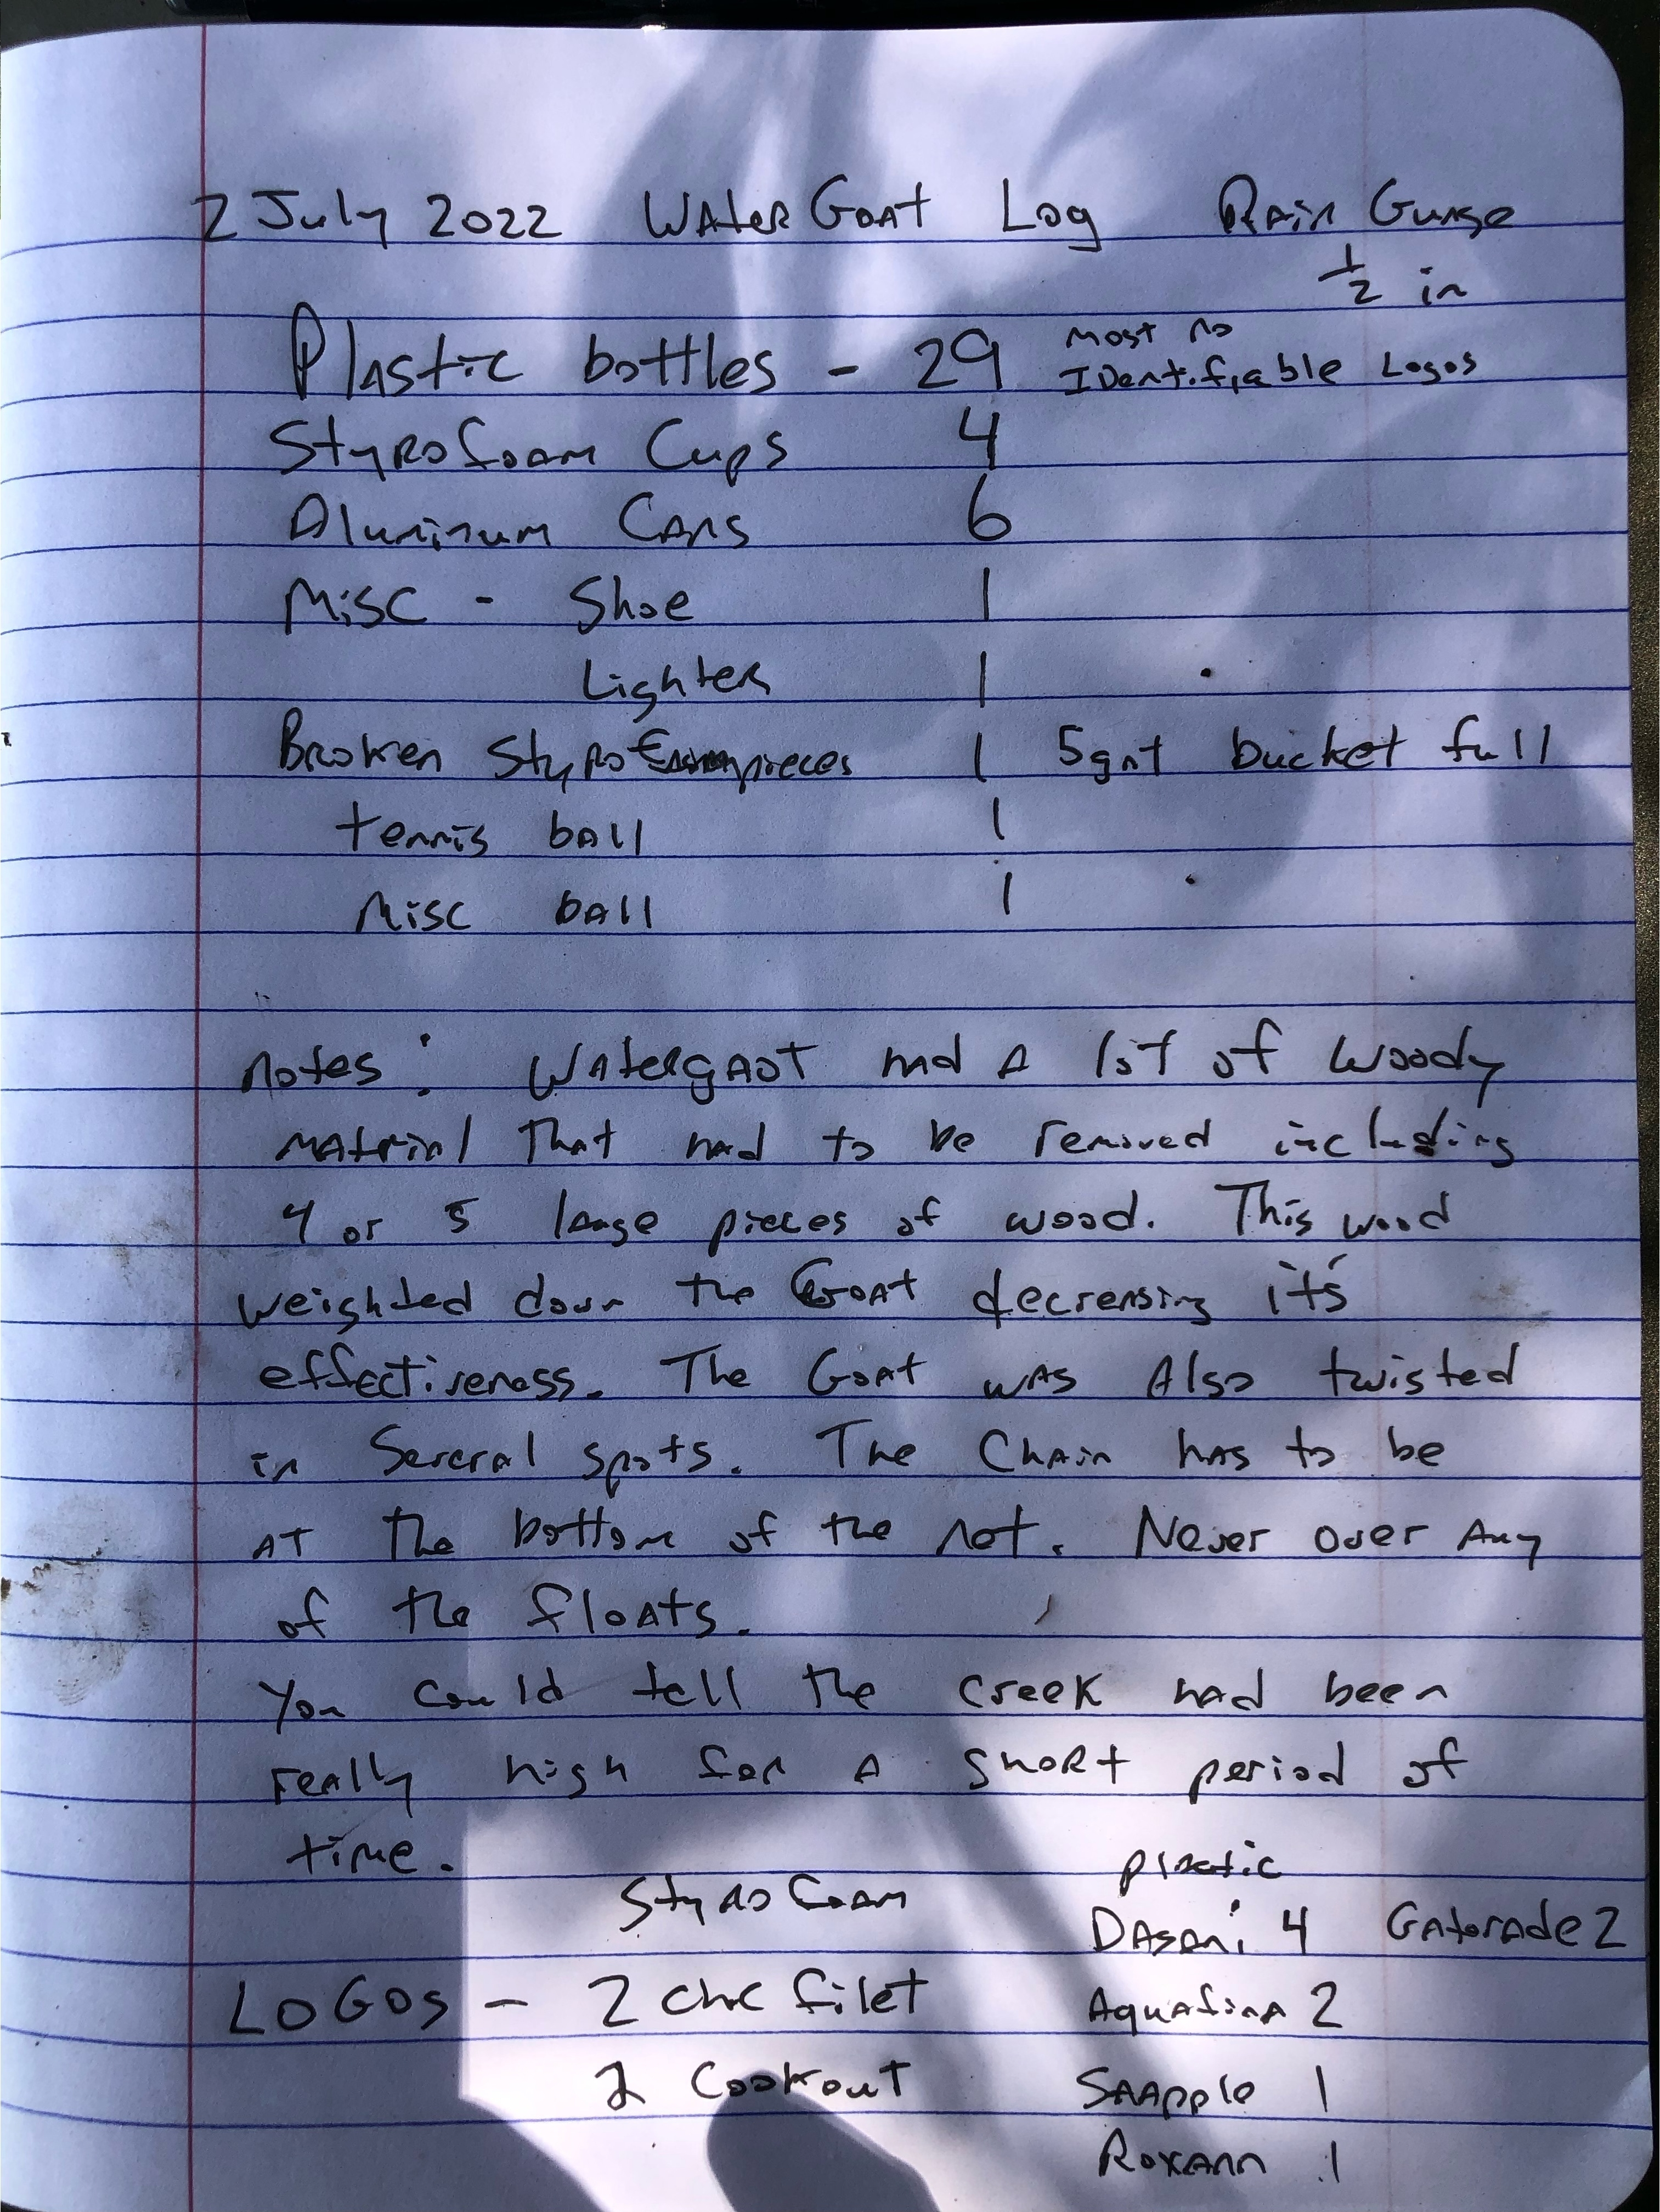 2 July 2022 WaterGoat Log Rain Guage
1/2 in
Plastic bottles - 29 most no
Identifiable Logos
Styrofoam Cups 4
Aluminum Cans 6
Misc - Shoe 1
Lighter 1
Broken Styrofoam pieces 1 5gal bucket full
tennis ball 1
Misc ball 1
Notes: Watergaot had a lot of woody
material that had to be removed including
4 or 5 large pieces of wood. This wood
weighted down the Goat decreasing it's
effectiveness. The Goat was also twisted
in several spots. The Chain has to be
at the bottom of the net. Never over any
of the floats.
You could tell the creek had been
really high for a short period of
time.
Styrofoam plastic
Dasani 4 Gatorade 2
LOGOS - 2 chic filet Aquafina 2
2 Cookout Snapple 1
Roxann 1